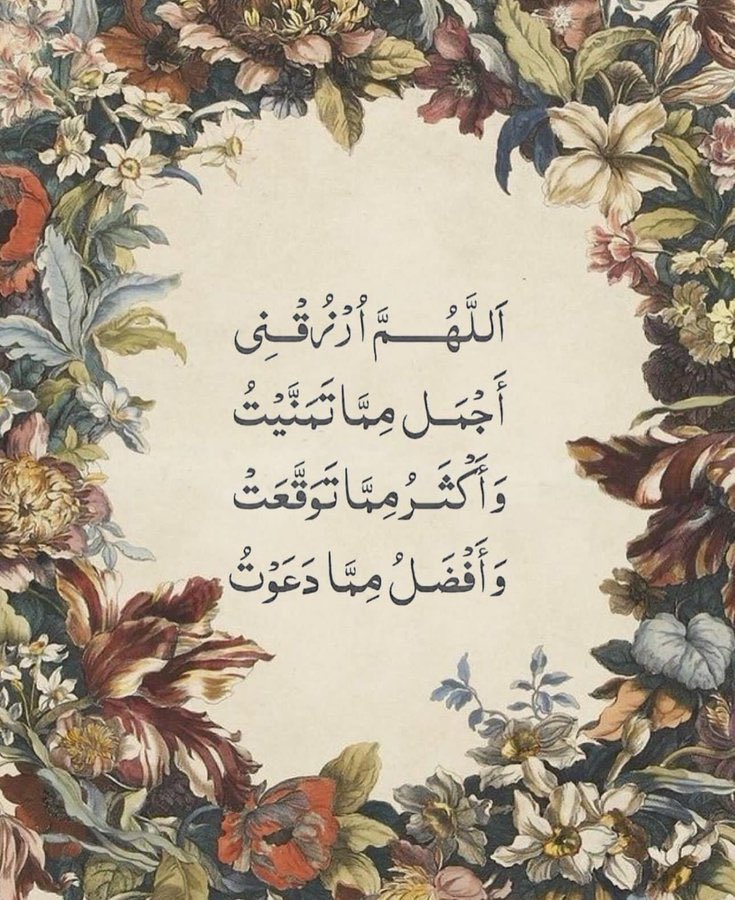 اَللَّهُـــمَّ اُرْزُقْـنِى
أَجْمَـل مِمَّا تَمَنَّيْتُ
وَأَكْثَـرُ مِمَّا تَوَقَّعَتْ
وَأَفْضَلُ مِمَّا دَعَوْتُ